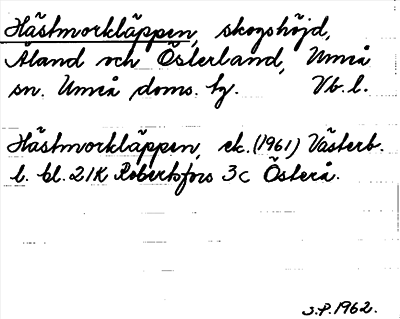 Hästmorkläppen, skogshöjd,
Åland och Österland, Umeå
sn. Umeå doms. hg. Vb. l.
Hästmorkläppen, ek. (1961) Västerb.
l. bl. 21K Robertsfors 3c Österå.
S.P. 1962.